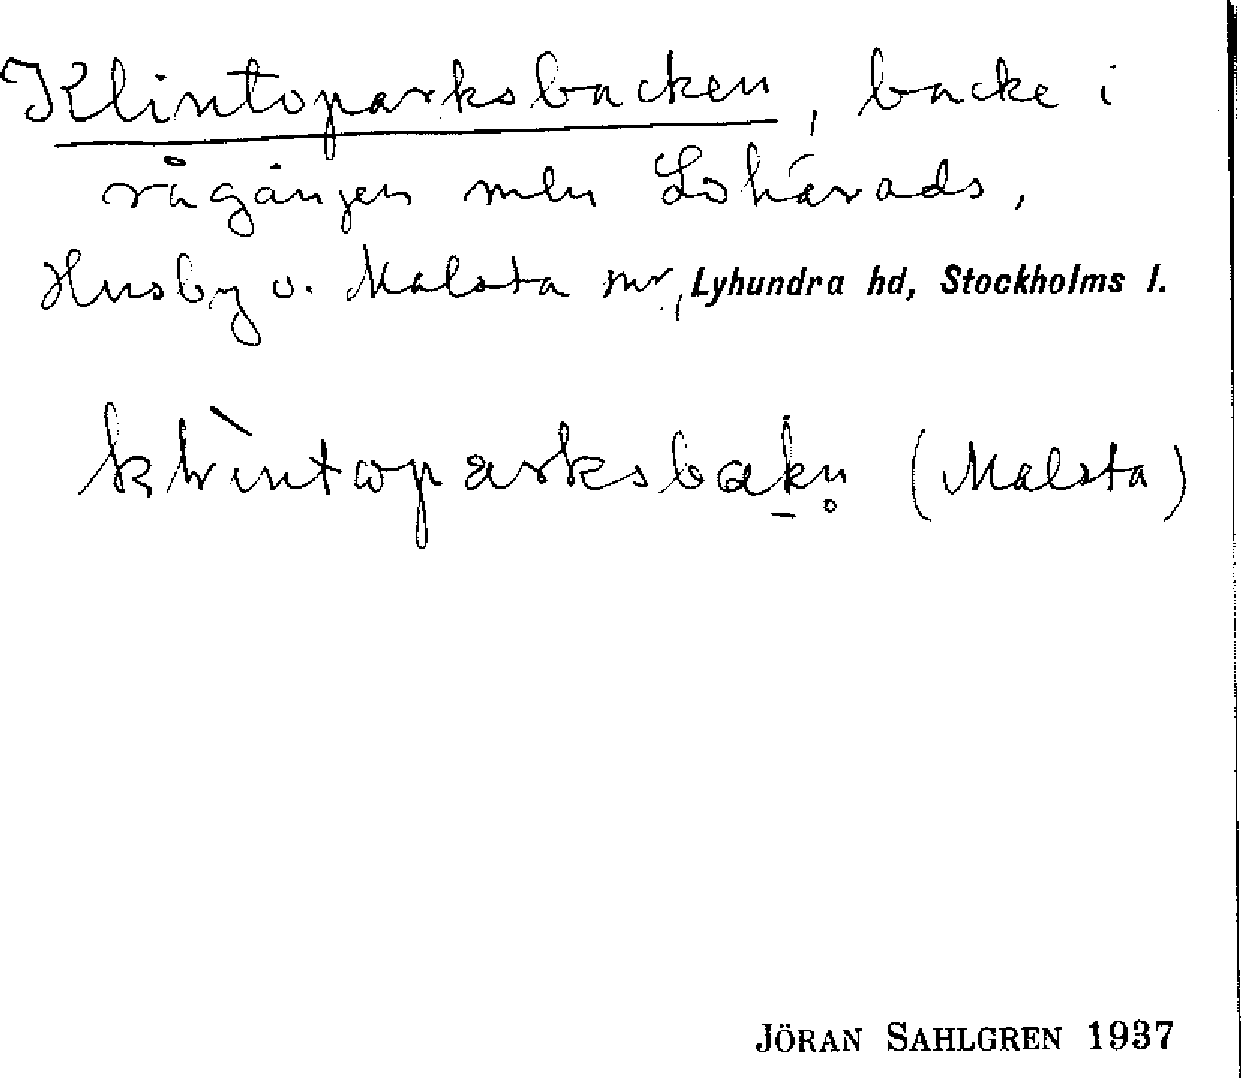 Klintoparksbacken, backe i
rågången mln Lohärads,
Husby o. Malsta snr, Lyhundra hd, Stockholms l.
klìntoparksbakn̥ (Malsta)
JÖRAN SAHLGREN 1937